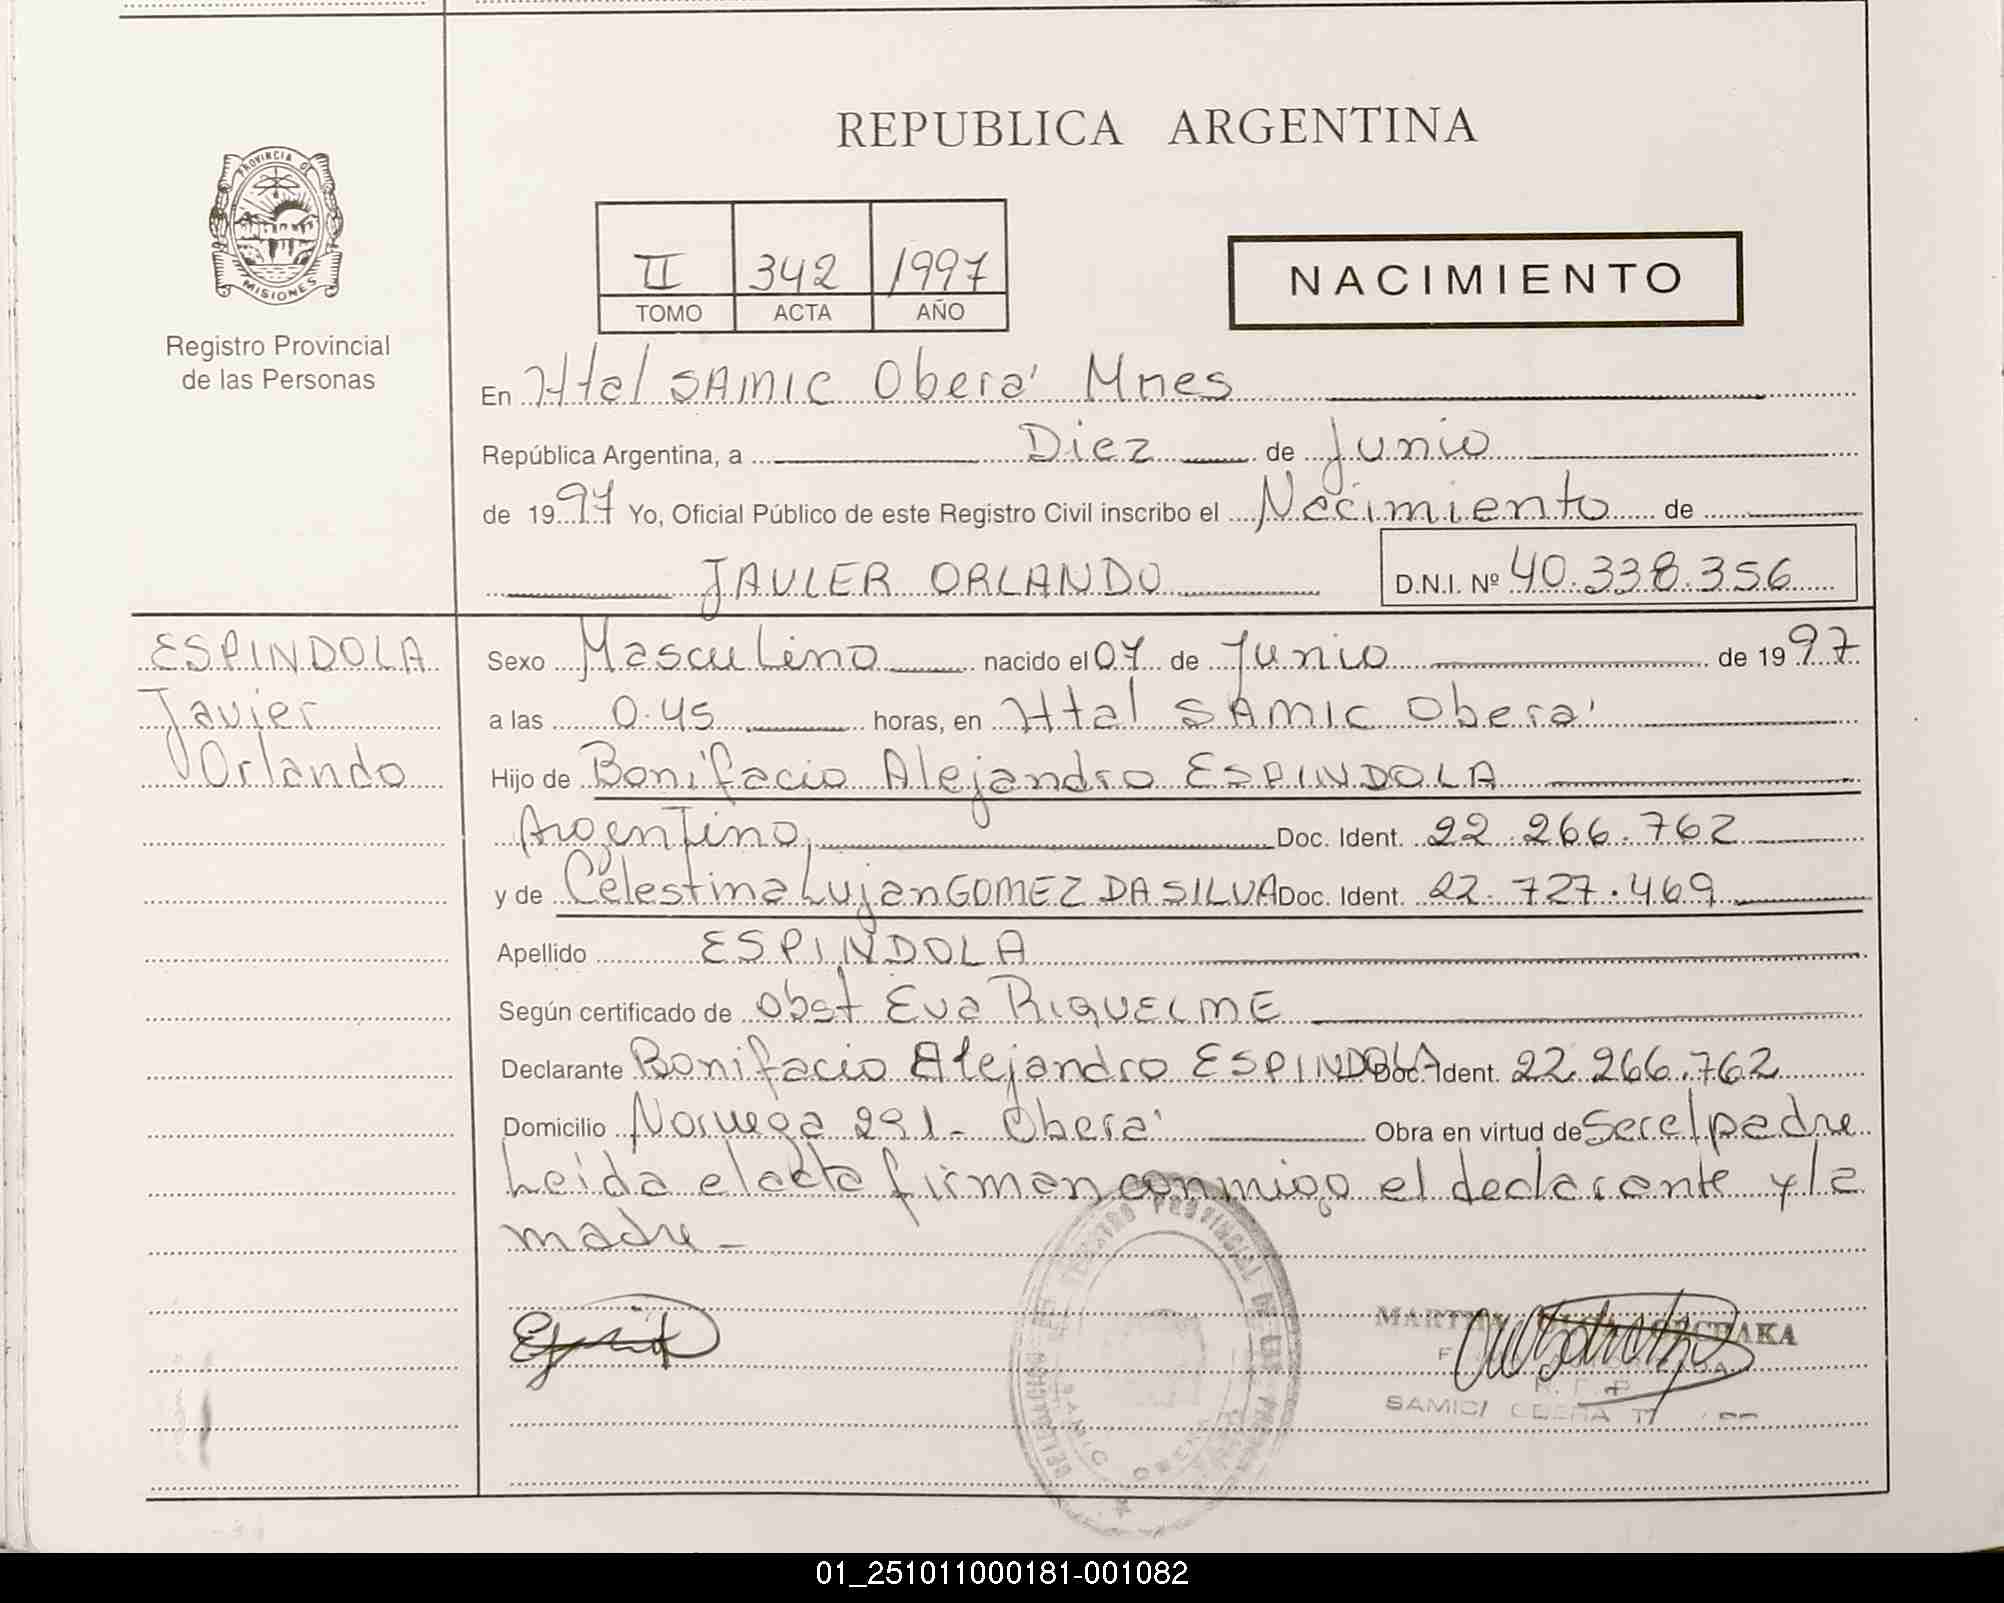 REPUBLICA ARGENTINA
PROVINCIA DE
MISIONES
Registro Provincial
de las Personas
II 342 1997
TOMO ACTA AÑO
NACIMIENTO
En Htal SAMIC Oberá Mnes
República Argentina, a Diez de Junio
de 1997 Yo, Oficial Público de este Registro Civil inscribo el Nacimiento de
JAVIER ORLANDO D.N.I. Nº 40.338.356
ESPINDOLA
Javier
Orlando
Sexo Masculino nacido el 07 de Junio de 1997
a las 0.45 horas, en Htal SAMIC Oberá
Hijo de Bonifacio Alejandro ESPINDOLA
Argentino, Doc. Ident. 22.266.762
y de Celestina Lujan GOMEZ DA SILVA Doc. Ident. 22.727.469
Apellido ESPINDOLA
Según certificado de Obst Eva RIQUELME
Declarante Bonifacio Alejandro ESPINDOLA Doc. Ident. 22.266.762
Domicilio Noruega 291 - Oberá Obra en virtud de Ser el padre
Leída el acta firman conmigo el declarante y la
madre -
REGISTRO PROVINCIAL DE LAS
SAMIC OBERA
MARTHA
SAMIC/ OBERA
01_251011000181-001082